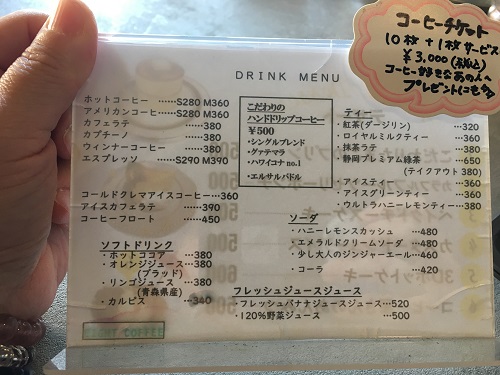 コーヒーチケット
10枚+1枚サービス
¥3,000(税込)
コーヒー好きなあの人へ
プレゼントにも
DRINK MENU
ホットコーヒー ……S280 M360
アメリカンコーヒー……S280 M360
カフェラテ ……380
カプチーノ ……380
ウィンナーコーヒー ……380
エスプレッソ ……S290 M390
コールドクレマアイスコーヒー…360
アイスカフェラテ ……390
コーヒーフロート ……450
ソフトドリンク
・ホットココアー ……380
・オレンジジュース……380
(ブラッド)
・リンゴジュース ……380
(青森県産)
・カルピス ……340
こだわりの
ハンドドリップコーヒー
¥500
・シングルブレンド
・グァテマラ
・ハワイコナ no.1
・エルサルバドル
ティー
・紅茶(ダージリン) ……320
・ロイヤルミルクティー ……360
・抹茶ラテ ……380
・静岡プレミアム緑茶 ……650
(テイクアウト 380)
・アイスティー ……360
・アイスグリーンティー ……360
・ウルトラハニーレモンティー……380
ソーダ
・ハニーレモンスカッシュ ……480
・エメラルドクリームソーダ ……480
・少し大人のジンジャーエール……460
・コーラ ……420
フレッシュジュースジュース
・フレッシュバナナジュースジュース……520
・120%野菜ジュース ……500